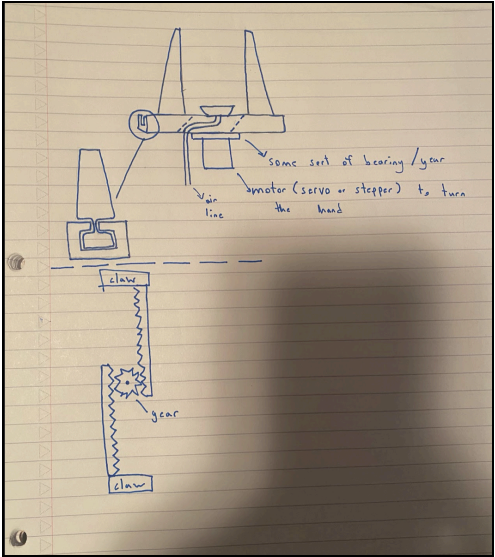 some sort of bearing/gear
motor (servo or stepper) to turn
the hand
air
line
claw
gear
claw